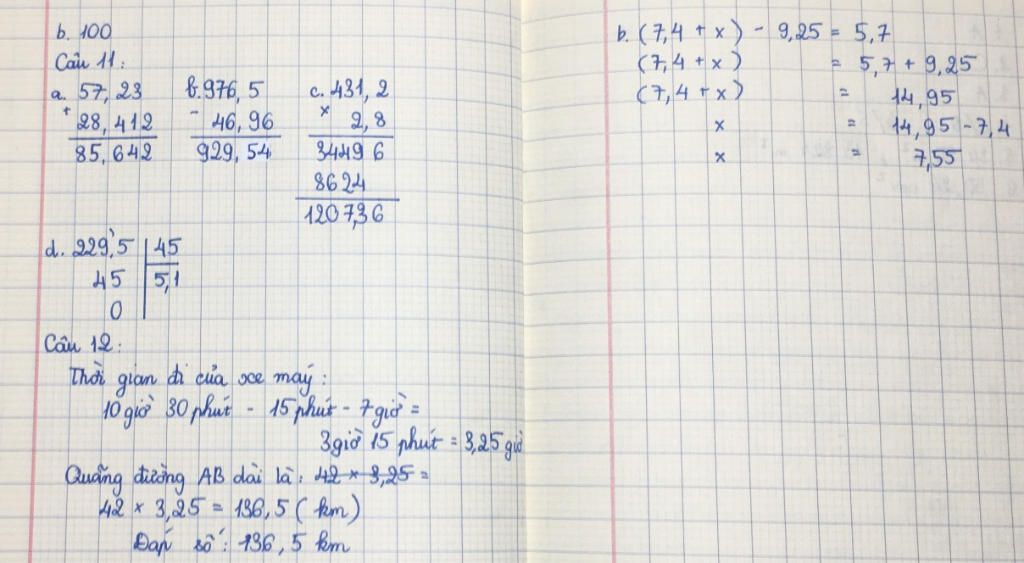 b. 100
Câu 11:
a. 57,23 b. 976,5 c. 431,2
+ 28,412 - 46,96 × 2,8
85,642 929,54 34496
8624
1207,36
d. 229,5 45
45 5,1
0
Câu 12:
Thời gian đi của xe máy:
10 giờ 30 phút - 15 phút - 7 giờ =
3 giờ 15 phút = 3,25 giờ
Quãng đường AB dài là: 42 × 3,25 =
42 × 3,25 = 136,5 (km)
Đáp số: 136,5 km
b. (7,4 + x) - 9,25 = 5,7
(7,4 + x) = 5,7 + 9,25
(7,4 + x) = 14,95
x = 14,95 - 7,4
x = 7,55